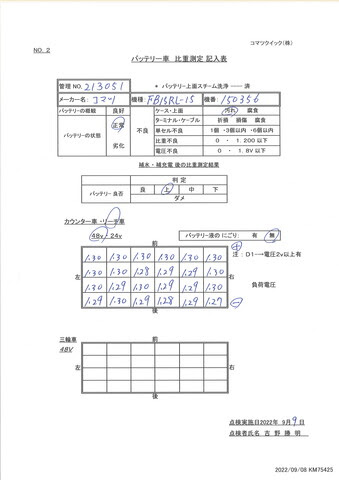 コマツクイック(株)
NO. 2
バッテリー車 比重測定 記入表
管理NO. 213051 * バッテリー上面スチーム洗浄 ―― 済
メーカー名. コマツ 機種. FB15RL-15 機番. 150356
バッテリーの概観 良好 不良 ケース・上面 汚れ 腐食
バッテリーの状態 正常 ターミナル・ケーブル 折損 損傷 腐食
単セル不良 1個 ・3個以内 ・6個以内
劣化 比重不良 0 ・ 1.200以下
電圧不良 0 ・ 1.8V以下
補水・補充電 後の比重測定結果
バッテリー 良否 判定
良 上 中 下
ダメ
カウンター車・リーチ車
48v・24v バッテリー液の にごり: 有 無
前
1.30 1.30 1.30 1.30 1.30 1.30
1.30 1.30 1.28 1.29 1.30 1.30
1.30 1.29 1.30 1.29 1.29 1.30
1.29 1.30 1.28 1.28 1.29 1.27
左 右
後
+
注:D1―→電圧2v以上有
負荷電圧
−
三輪車
48V
前
左 右
後
点検実施日2022年 9月9日
点検者氏名 吉野 勝明
2022/09/08 KM75425